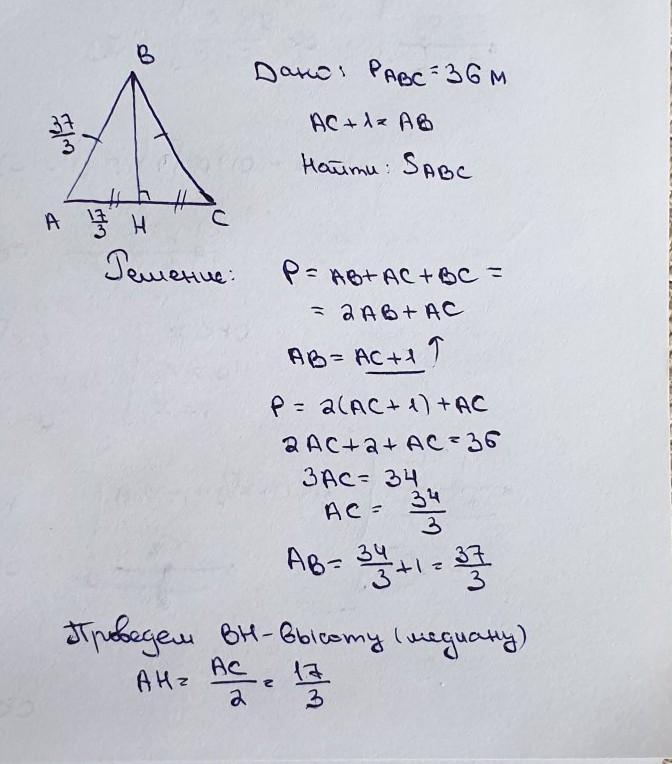 B
Дано: PABC = 36 м
37/3
AC + 1 = AB
Найти: SABC
A 17/3 H C
Решение: P = AB + AC + BC =
= 2AB + AC
AB = AC + 1 ↑
P = 2(AC + 1) + AC
2AC + 2 + AC = 36
3AC = 34
AC = 34/3
AB = 34/3 + 1 = 37/3
Проведем BH - высоту (медиану)
AH = AC/2 = 17/3